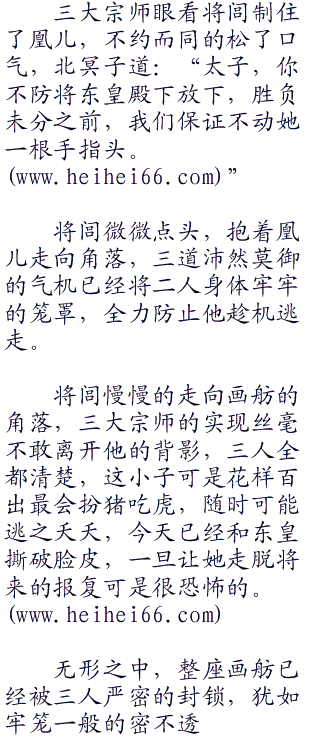 三大宗师眼看将闾制住
了凰儿，不约而同的松了口
气，北冥子道：“太子，你
不防将东皇殿下放下，胜负
未分之前，我们保证不动她
一根手指头。
(www.heihei66.com)”
将闾微微点头，抱着凰
儿走向角落，三道沛然莫御
的气机已经将二人身体牢牢
的笼罩，全力防止他趁机逃
走。
将闾慢慢的走向画舫的
角落，三大宗师的实现丝毫
不敢离开他的背影，三人全
都清楚，这小子可是花样百
出最会扮猪吃虎，随时可能
逃之夭夭，今天已经和东皇
撕破脸皮，一旦让她走脱将
来的报复可是很恐怖的。
(www.heihei66.com)
无形之中，整座画舫已
经被三人严密的封锁，犹如
牢笼一般的密不透